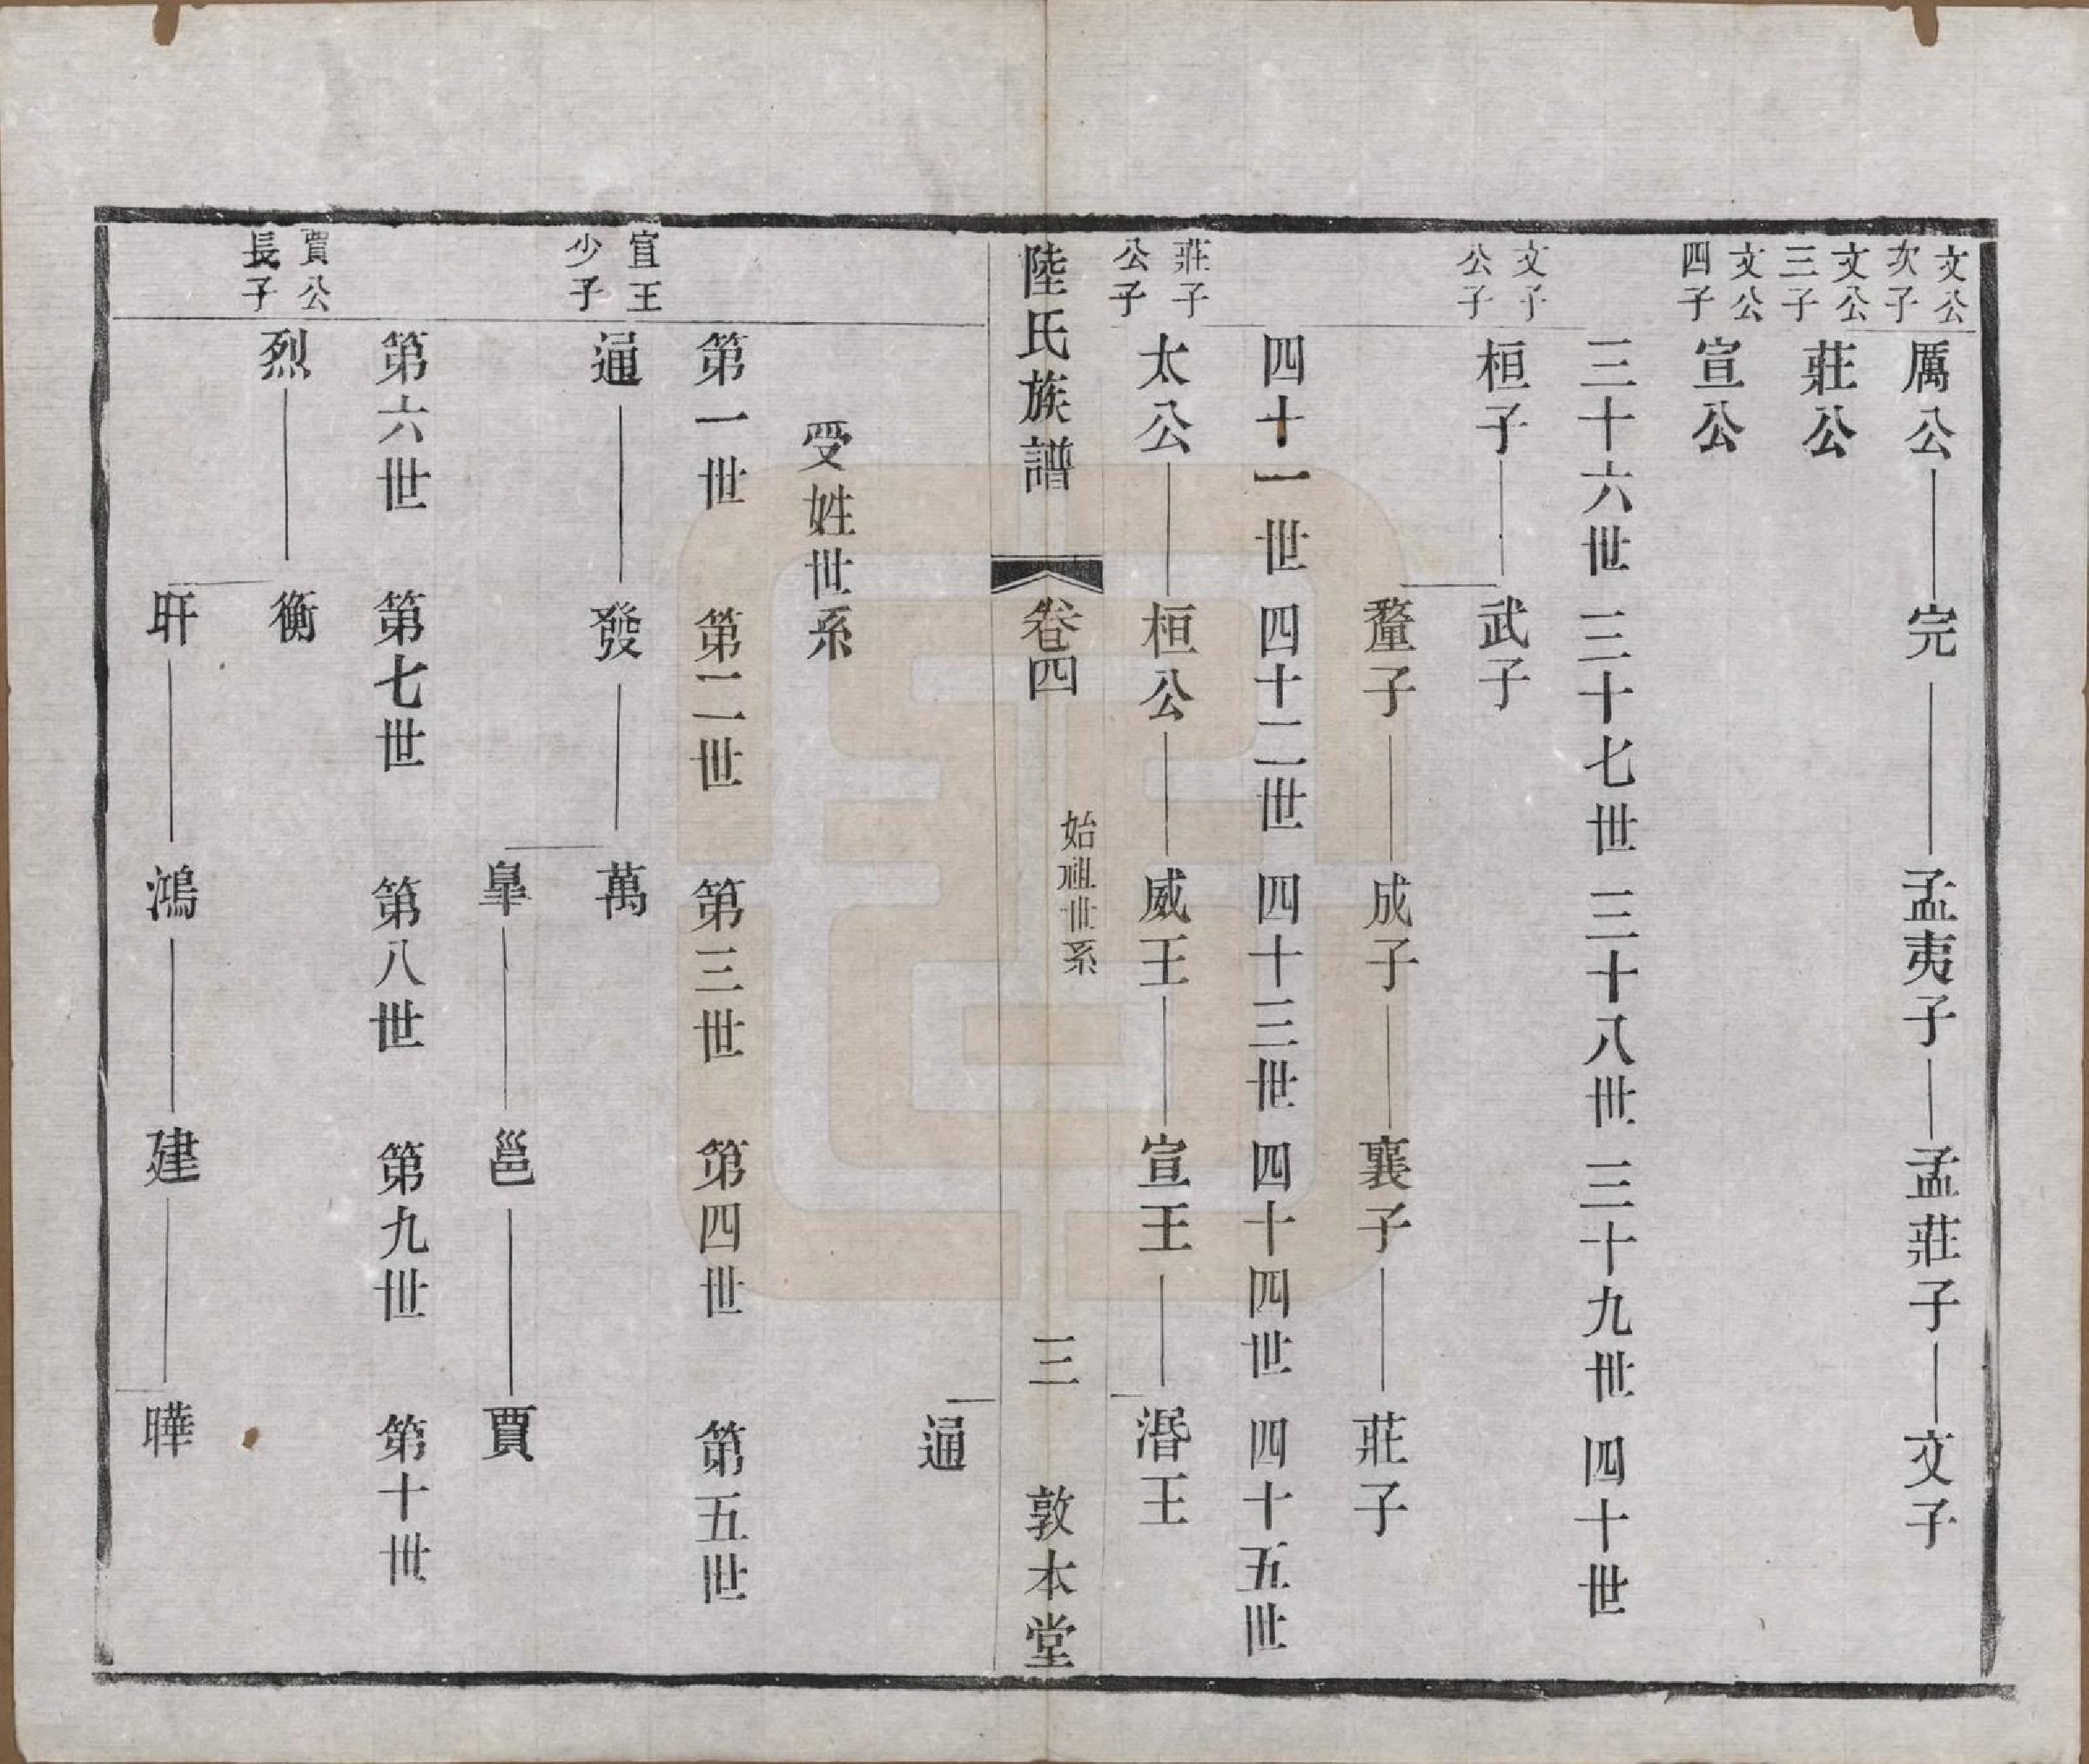 文公次子
厲公 完 孟夷子 孟莊子 文子
文公三子
莊公
文公四子
宣公
三十六世 三十七世 三十八世 三十九世 四十世
文子公子
桓子 武子
釐子 成子 襄子 莊子
四十一世 四十二世 四十三世 四十四世 四十五世
莊子公子
太公 桓公 威王 宣王 湣王
陸氏族譜 卷四 始祖世系 三 敦本堂
通
受姓世系
第一世 第二世 第三世 第四世 第五世
宣王少子
通 發 萬
臯 邕 賈
第六世 第七世 第八世 第九世 第十世
賈公長子
烈 衡
盰 鴻 建 曄